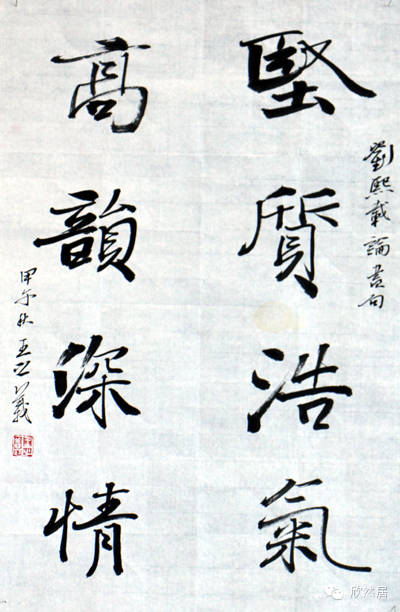 劉熙載論書句
堅質浩氣
高韻深情
甲午秋王義
欣然居